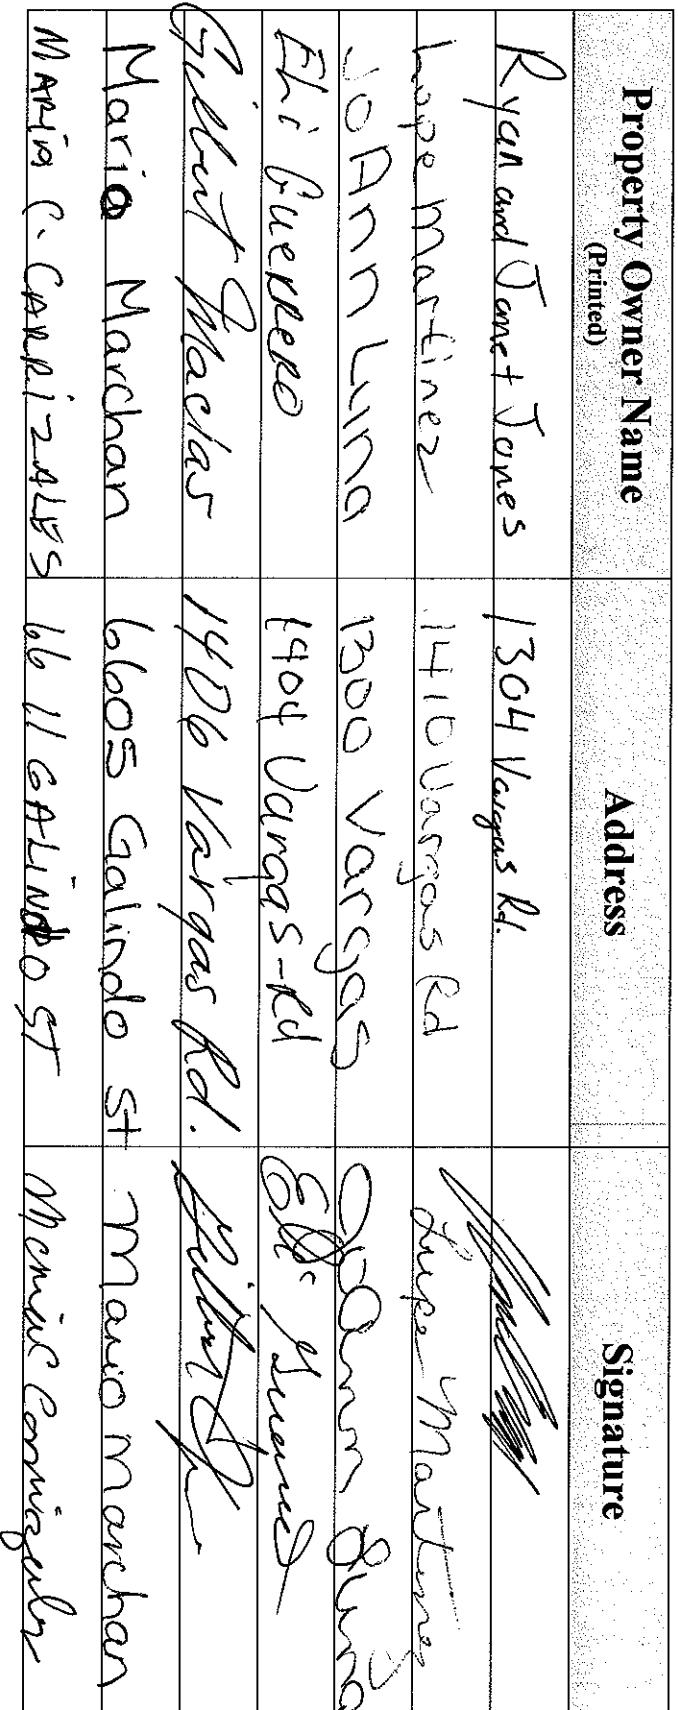 Property Owner Name Address Signature
(Printed)
Ryan and Janet Jones 1304 Vargas Rd.
Lupe Martinez 1410 Vargas Rd Lupe Martinez
JoAnn Luna 1300 Vargas JoAnn Luna
Eli Guerrero 1404 Vargas-Rd Eli Guerrero
Gilbert Macias 1406 Vargas Rd.
Maria Marchan 6605 Galindo St Maria Marchan
MARIA C. CARRIZALES 6611 GALINDO ST Maria C Carrizales